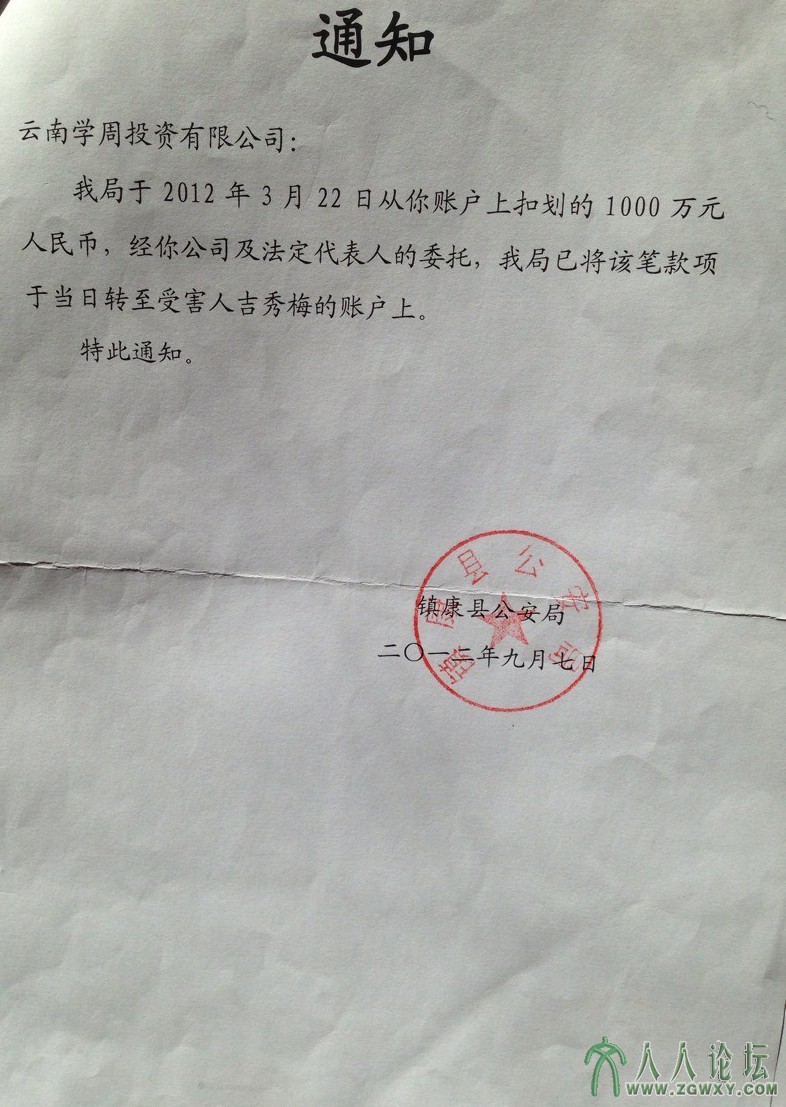 通知
云南学周投资有限公司：
我局于 2012 年 3 月 22 日从你账户上扣划的 1000 万元
人民币，经你公司及法定代表人的委托，我局已将该笔款项
于当日转至受害人吉秀梅的账户上。
特此通知。
镇康县公安局
镇康县公安局
二〇一二年九月七日
人人论坛
WWW.ZGWXY.COM